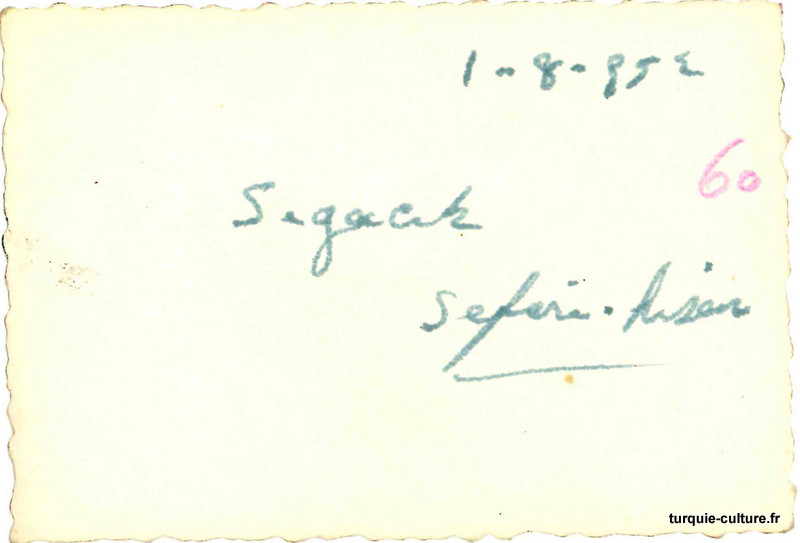 1-8-952
60
Sıgacık
Seferi-hisar
turquie-culture.fr